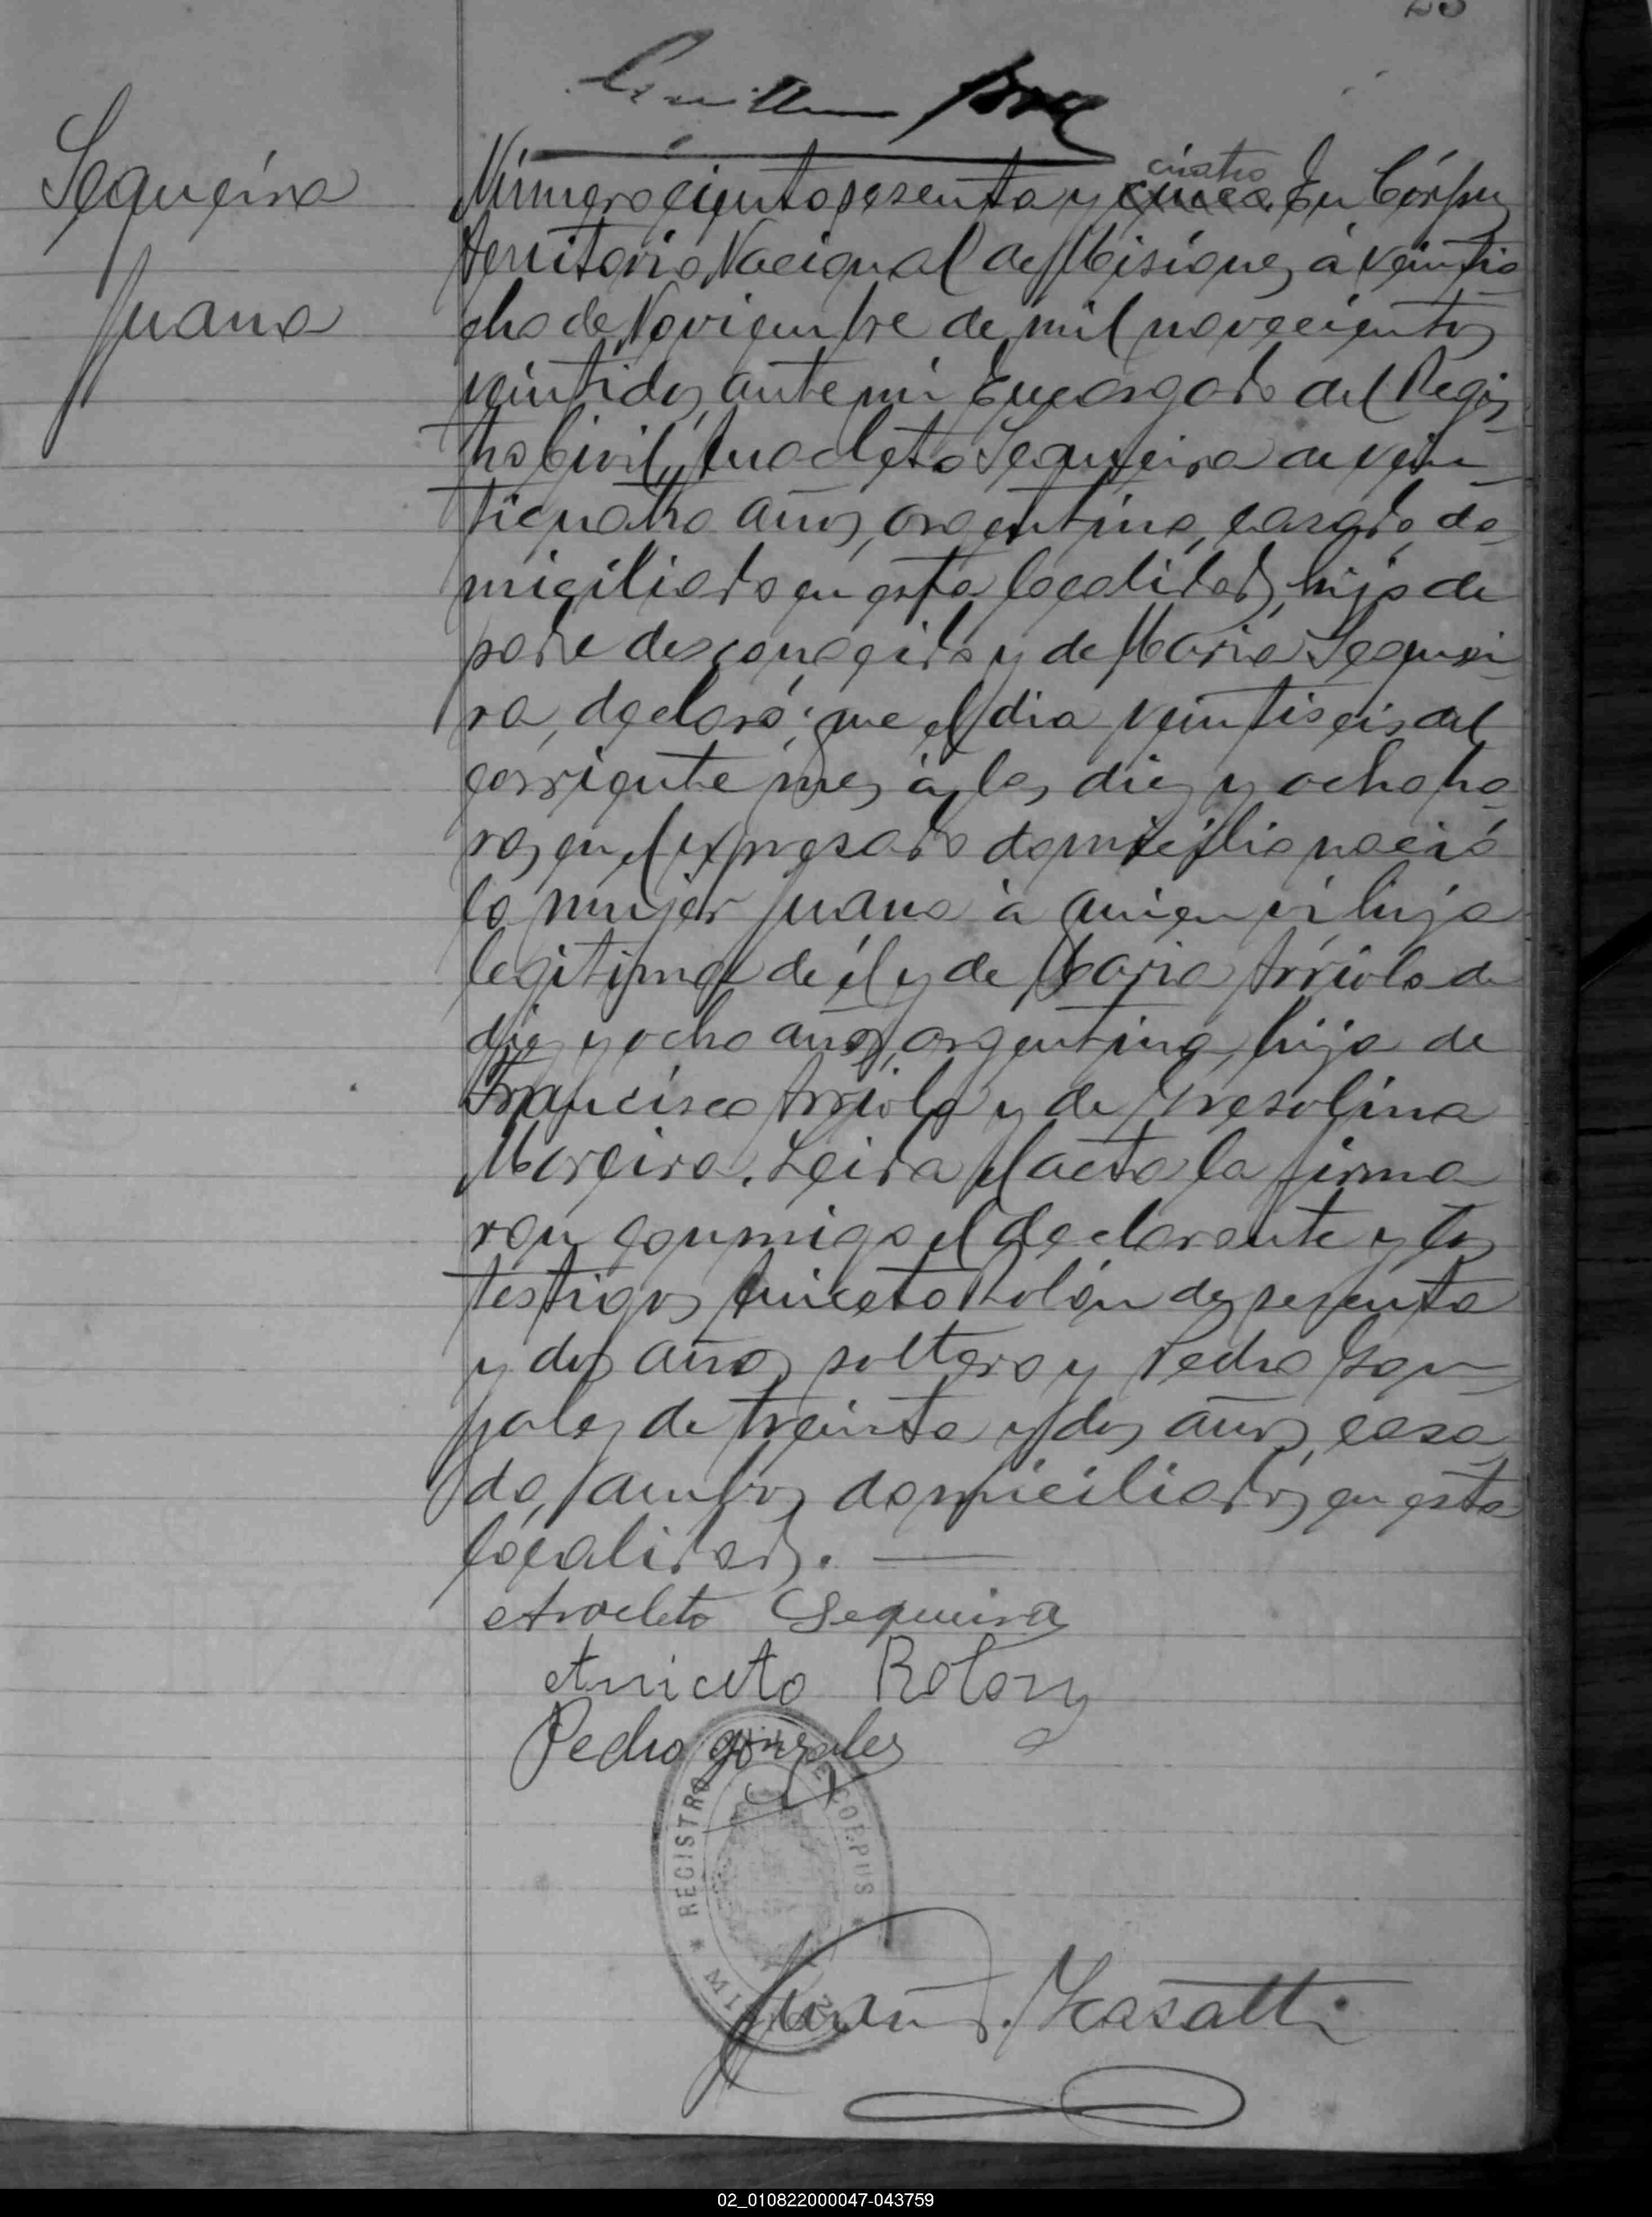 23
Sequeira
Juana
cuatro
Número ciento sesenta y cinco. En Córpus
territorio Nacional de Misiones, á veintio
cho de Noviembre de mil novecientos
veintidos, ante mi Encargado del Regis
tro Civil, Anacleto Sequeira de vein
ticuatro años, argentino, casado, do
miciliado en esta localidad, hijo de
padre desconocido y de Maria Sequei
ra, declaró: que el dia veintiseis del
corriente mes á las diez y ocho ho
ras en el expresado domicilio nació
la mujer Juana á quien ví hija
legitima de él y de Maria Arriola de
diez y ocho años, argentina, hija de
Francisco Arriola y de
Moreira. Leida el acta la firma
ron conmigo el declarante y los
testigos Aniceto Rolón de sesenta
y dos años soltero y Pedro Gon
zales de treinta y dos años, casa
do, ambos domiciliados en esta
localidad. —
Anacleto Sequeira
Aniceto Rolon
Pedro gonzales
REGISTRO DE CORPUS
MISIONES
Juan
02_010822000047-043759